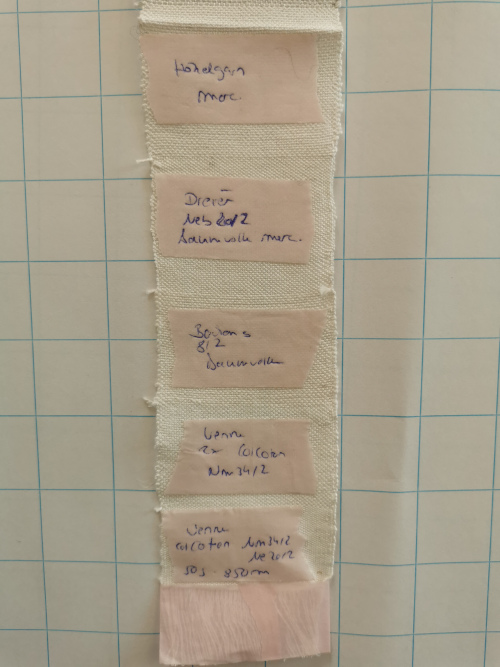 Häkelgarn
merc.
Dieren
Neb 20/2
Baumwolle merc.
Bockens
8/2
Baumwolle
Venne
Colcoton
Nm 34/2
Venne
colcoton Nm 34/2
Ne 20/2
50g 850m